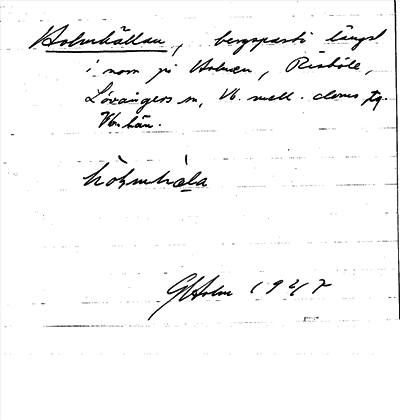 Holmhällan, bergsparti längst
i norr på Holmen, Risböle,
Lövångers sn, Vb. mell. dens fg.
Vb. län.
hòlmhä̀la
G Holm 1947